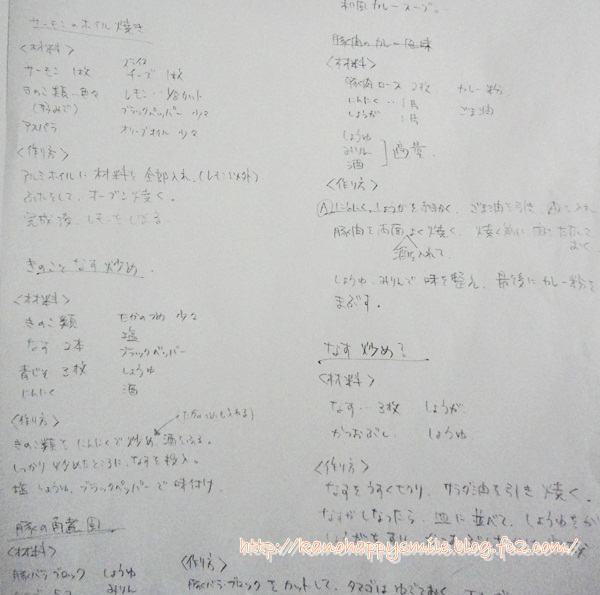 サーモンのホイル焼き
<材料>
サーモン 1枚 スライスチーズ 1枚
きのこ類 レモン
ブラックペッパー 少々
アスパラ オリーブオイル 少々
<作り方>
アルミホイルに材料を全部入れ、(レモン以外)
ふたをして、オーブン焼く。
完成後、レモンをしぼる
きのことなす炒め
<材料>
きのこ類 たかのつめ 少々
なす 2本 塩
青じそ 3枚 ブラックペッパー
にんにく しょうゆ
酒
<作り方>
きのこ類をにんにくで炒め、酒をふる。
しっかり炒めたところに、なすを投入。
塩、しょうゆ、ブラックペッパーで味付け
豚の角煮
<材料>
豚バラブロック しょうゆ
みりん
<作り方>
豚バラブロックをカットして、タマゴはゆでておく。
和風カレースープ。
豚肉のカレー風味
<材料>
豚肉ロース 2枚 カレー粉
にんにく ‥ 1片 ごま油
しょうが 1片
しょうゆ
みりん 適量
酒
<作り方>
Ⓐにんにく、しょうがを細かく、ごま油を引き
豚肉を両面よく焼く。
酒を入れて
しょうゆ、みりんで味を整え、最後にカレー粉を
まぶす。
なす炒め?
<材料>
なす ‥ 3枚 しょうが
かつおぶし しょうゆ
<作り方>
なすをうすく切り、サラダ油を引き焼く。
なすがしなったら、皿に並べて、しょうゆをか
http://kamohappysmile.blog.fc2.com/